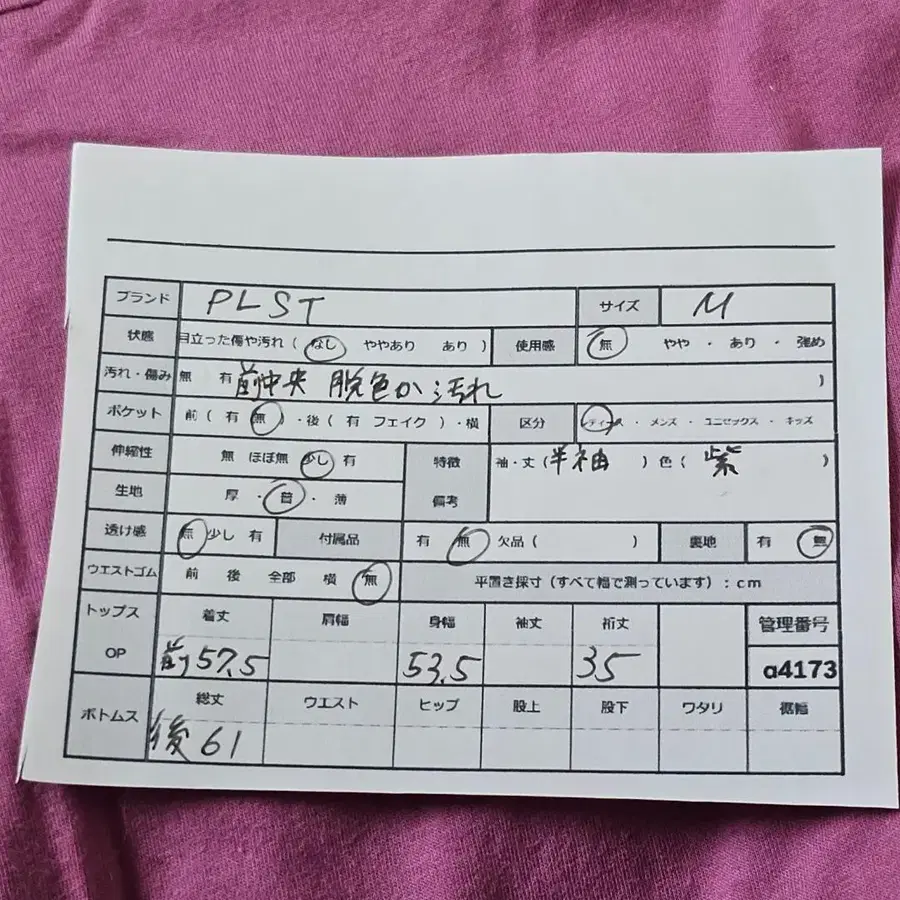 ブランド PLST サイズ M
状態 目立った傷や汚れ ( なし ややあり あり ) 使用感 無 やや ・ あり ・ 強め
汚れ・傷み 無 有 前中央 脱色か汚れ )
ポケット 前 ( 有 無 ) ・後 ( 有 フェイク ) ・横 区分 レディース ・ メンズ ・ ユニセックス ・ キッズ
伸縮性 無 ほぼ無 少し 有 特徴 袖・丈 ( 半袖 ) 色 ( 紫 )
生地 厚 ・ 普 ・ 薄 備考
透け感 無 少し 有 付属品 有 無 欠品 ( ) 裏地 有 無
ウエストゴム 前 後 全部 横 無 平置き採寸 (すべて幅で測っています) : cm
トップス 着丈 肩幅 身幅 袖丈 裄丈 管理番号
OP 前57.5 53.5 35 a4173
ボトムス 総丈 ウエスト ヒップ 股上 股下 ワタリ 裾幅
後 61